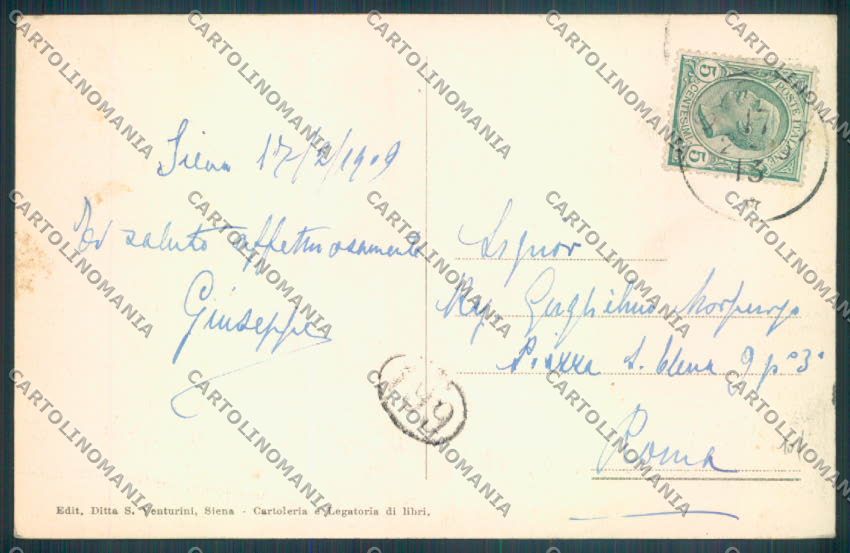 Siena 17/2/1909
Ti saluto affettuosamente
Giuseppe
POSTE ITALIANE
CENTESIMI 5
5
13
Signor
Rag Guglielmo Morpurgo
Piazza S. Elena 9 p° 3°
Roma
Edit. Ditta S. Venturini, Siena - Cartoleria e Legatoria di libri.
CARTOLINOMANIA